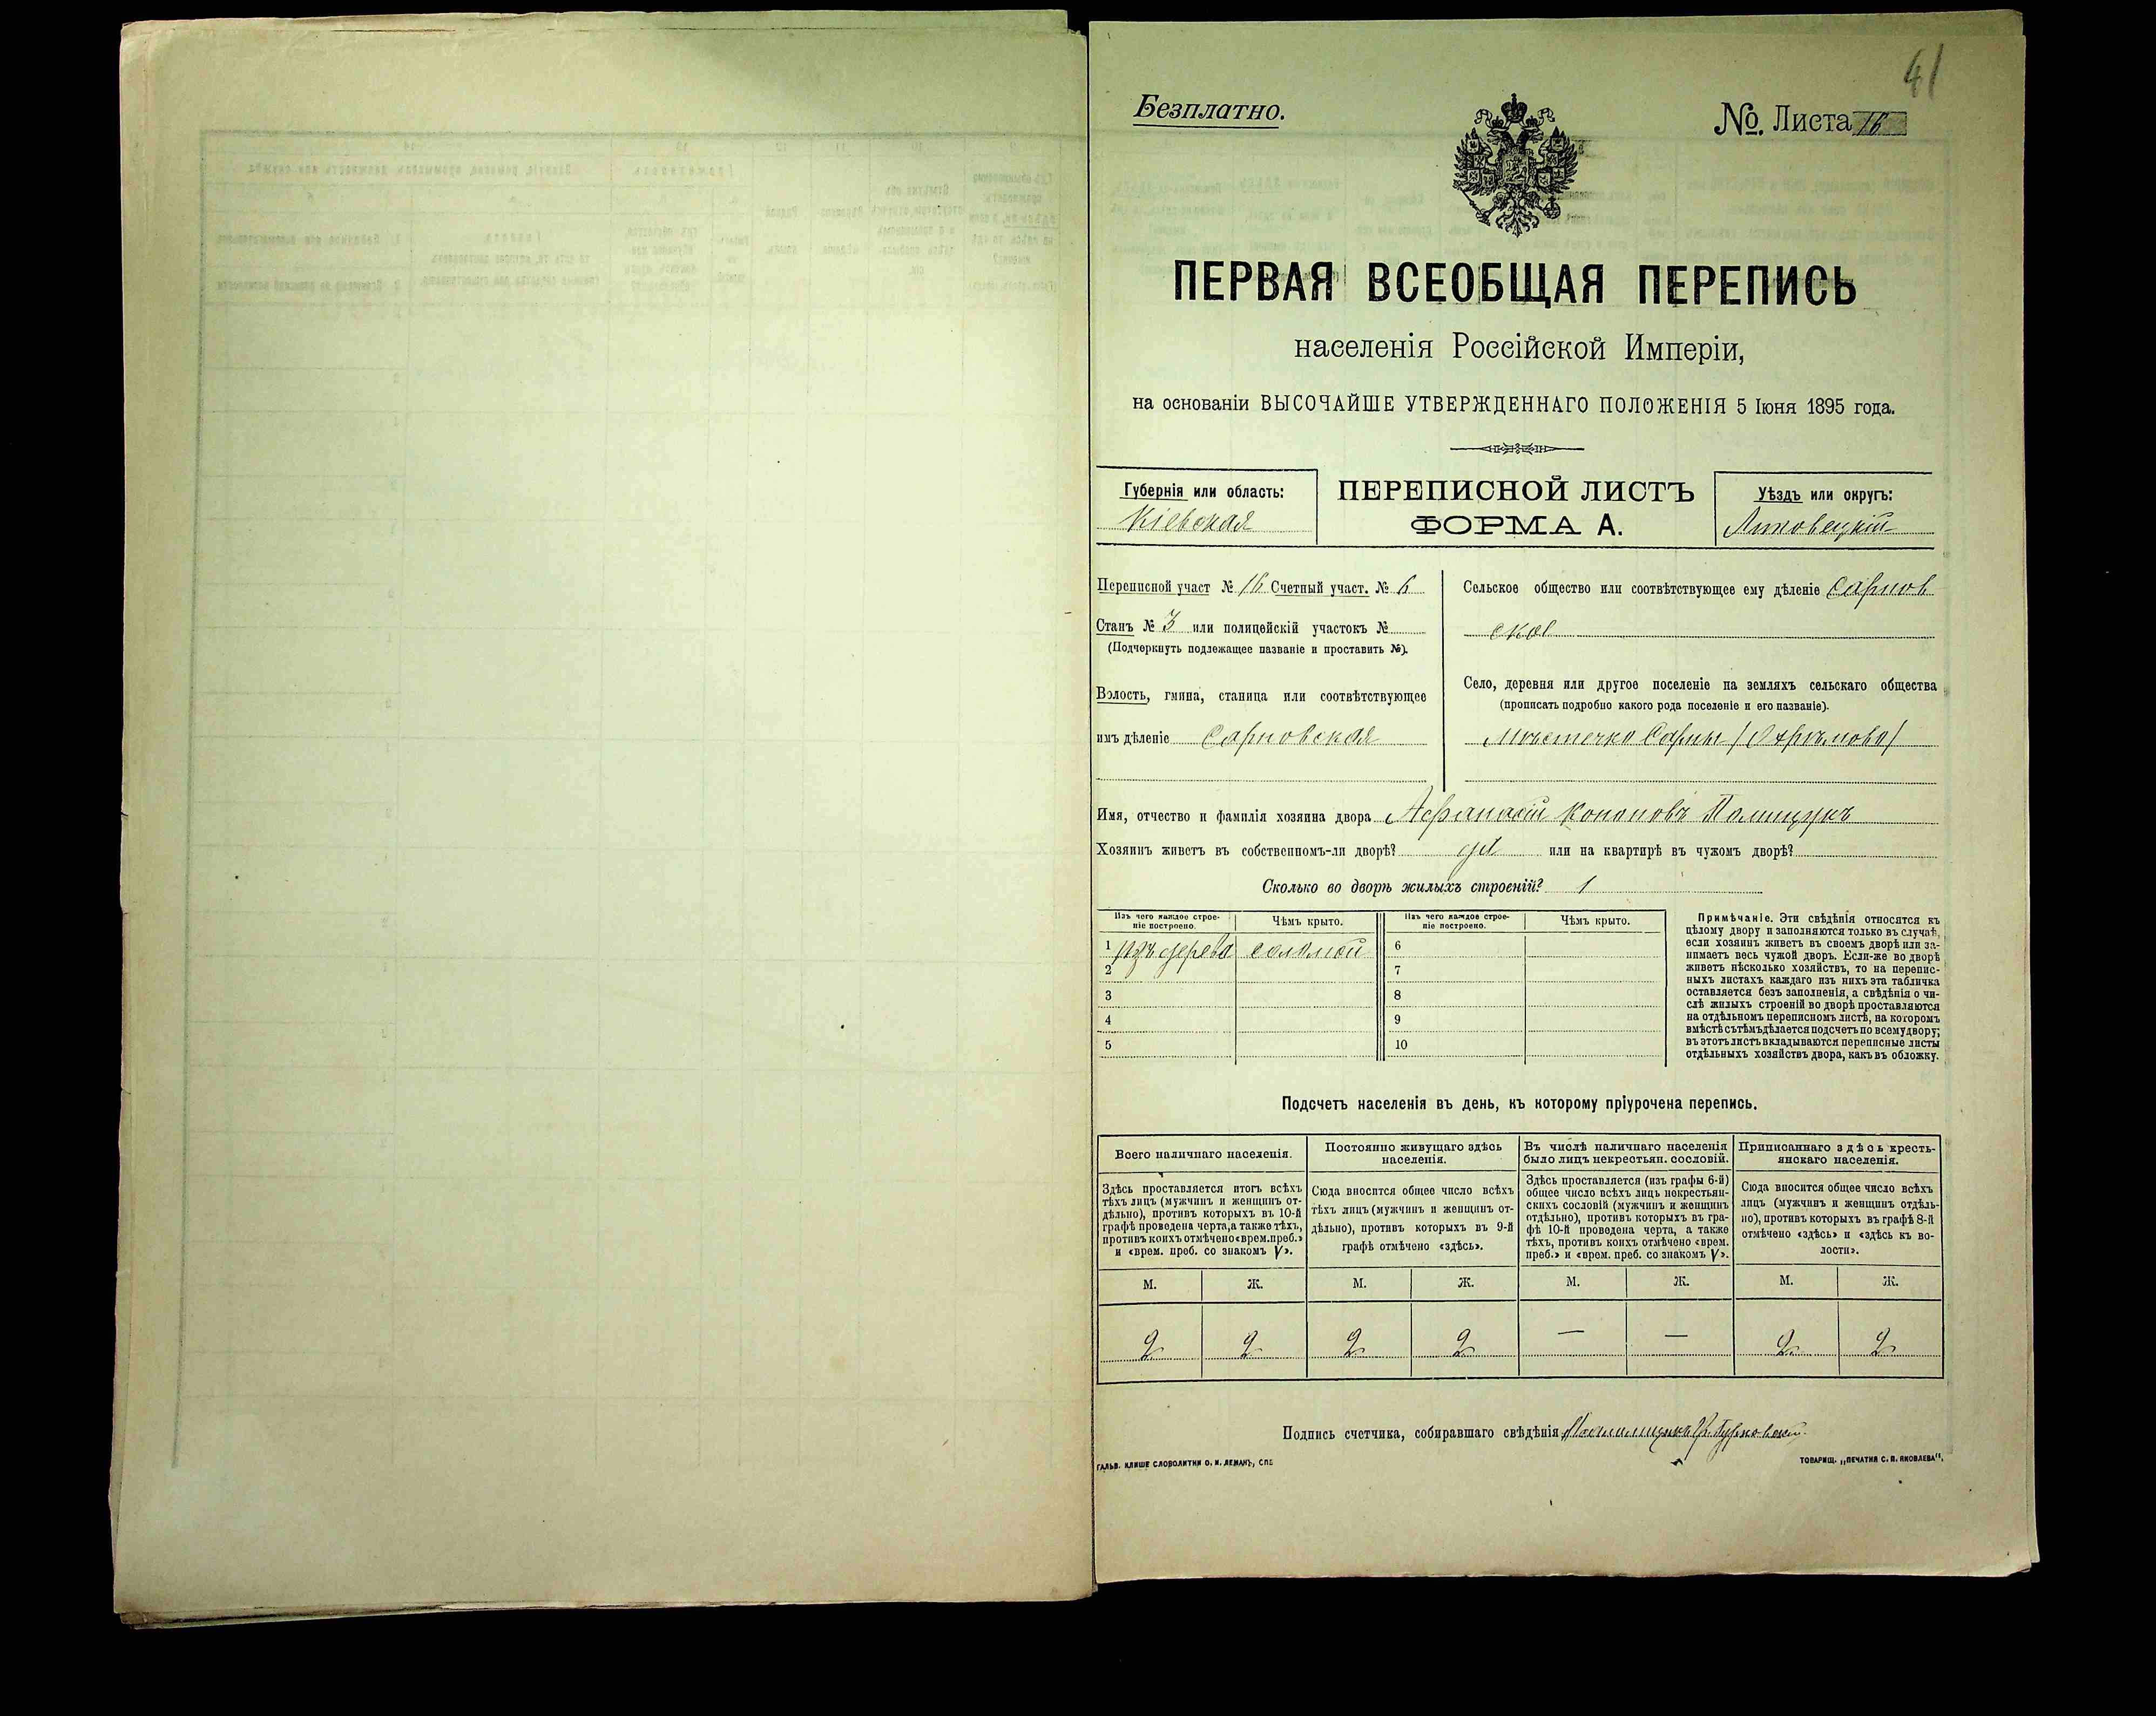 41
Безплатно.
№. Листа 16
ПЕРВАЯ ВСЕОБЩАЯ ПЕРЕПИСЬ
населенія Россійской Имперіи,
на основаніи ВЫСОЧАЙШЕ УТВЕРЖДЕННАГО ПОЛОЖЕНІЯ 5 Іюня 1895 года.
Губернія или область:
Кіевская
ПЕРЕПИСНОЙ ЛИСТЪ
ФОРМА А.
Уѣздъ или округъ:
Липовецкій
Переписной участ № 16 Счетный участ. № 6
Станъ № 3 или полицейскій участокъ №
(Подчеркнуть подлежащее названіе и проставить №).
Волость, гмина, станица или соотвѣтствующее
имъ дѣленіе Сарновская
Сельское общество или соотвѣтствующее ему дѣленіе Сарнов
ское
Село, деревня или другое поселеніе на земляхъ сельскаго общества
(прописать подробно какого рода поселеніе и его названіе).
Мѣстечко Сарны
Имя, отчество и фамилія хозяина двора Афанасій Кононовъ Полищукъ
Хозяинъ живетъ въ собственномъ-ли дворѣ? да или на квартирѣ въ чужомъ дворѣ?
Сколько во дворѣ жилыхъ строеній? 1
Изъ чего каждое строе-
ніе построено.
Чѣмъ крыто.
Изъ чего каждое строе-
ніе построено.
Чѣмъ крыто.
1 изъ дерева соломой 6
2 7
3 8
4 9
5 10
Примѣчаніе. Эти свѣдѣнія относятся къ
цѣлому двору и заполняются только въ случаѣ,
если хозяинъ живетъ въ своемъ дворѣ или за-
нимаетъ весь чужой дворъ. Если-же во дворѣ
живетъ нѣсколько хозяйствъ, то на перепис-
ныхъ листахъ каждаго изъ нихъ эта табличка
оставляется безъ заполненія, а свѣдѣнія о чи-
слѣ жилыхъ строеній во дворѣ проставляются
на отдѣльномъ переписномъ листѣ, на которомъ
вмѣстѣ съ тѣмъ дѣлается подсчетъ по всему двору;
въ этотъ листъ вкладываются переписные листы
отдѣльныхъ хозяйствъ двора, какъ въ обложку.
Подсчетъ населенія въ день, къ которому пріурочена перепись.
Всего наличнаго населенія.
Здѣсь проставляется итогъ всѣхъ
тѣхъ лицъ (мужчинъ и женщинъ от-
дѣльно), противъ которыхъ въ 10-й
графѣ проведена черта, а также тѣхъ,
противъ коихъ отмѣчено «врем. преб.»
и «врем. преб. со знакомъ V».
Постоянно живущаго здѣсь
населенія.
Сюда вносится общее число всѣхъ
тѣхъ лицъ (мужчинъ и женщинъ от-
дѣльно), противъ которыхъ въ 9-й
графѣ отмѣчено «здѣсь».
Въ числѣ наличнаго населенія
было лицъ некрестьян. сословій.
Здѣсь проставляется (изъ графы 6-й)
общее число всѣхъ лицъ некрестьян-
скихъ сословій (мужчинъ и женщинъ
отдѣльно), противъ которыхъ въ гра-
фѣ 10-й проведена черта, а также
тѣхъ, противъ коихъ отмѣчено «врем.
преб.» и «врем. преб. со знакомъ V».
Приписаннаго здѣсь кресть-
янскаго населенія.
Сюда вносится общее число всѣхъ
лицъ (мужчинъ и женщинъ отдѣль-
но), противъ которыхъ въ графѣ 8-й
отмѣчено «здѣсь» и «здѣсь къ во-
лости».
М. Ж. М. Ж. М. Ж. М. Ж.
2 2 2 2 — — 2 2
Подпись счетчика, собиравшаго свѣдѣнія
ГАЛЬВ. КЛИШЕ СЛОВОЛИТНИ О. И. ЛЕМАНЪ, СПБ
ТОВАРИЩ. „ПЕЧАТНЯ С. П. ЯКОВЛЕВА".